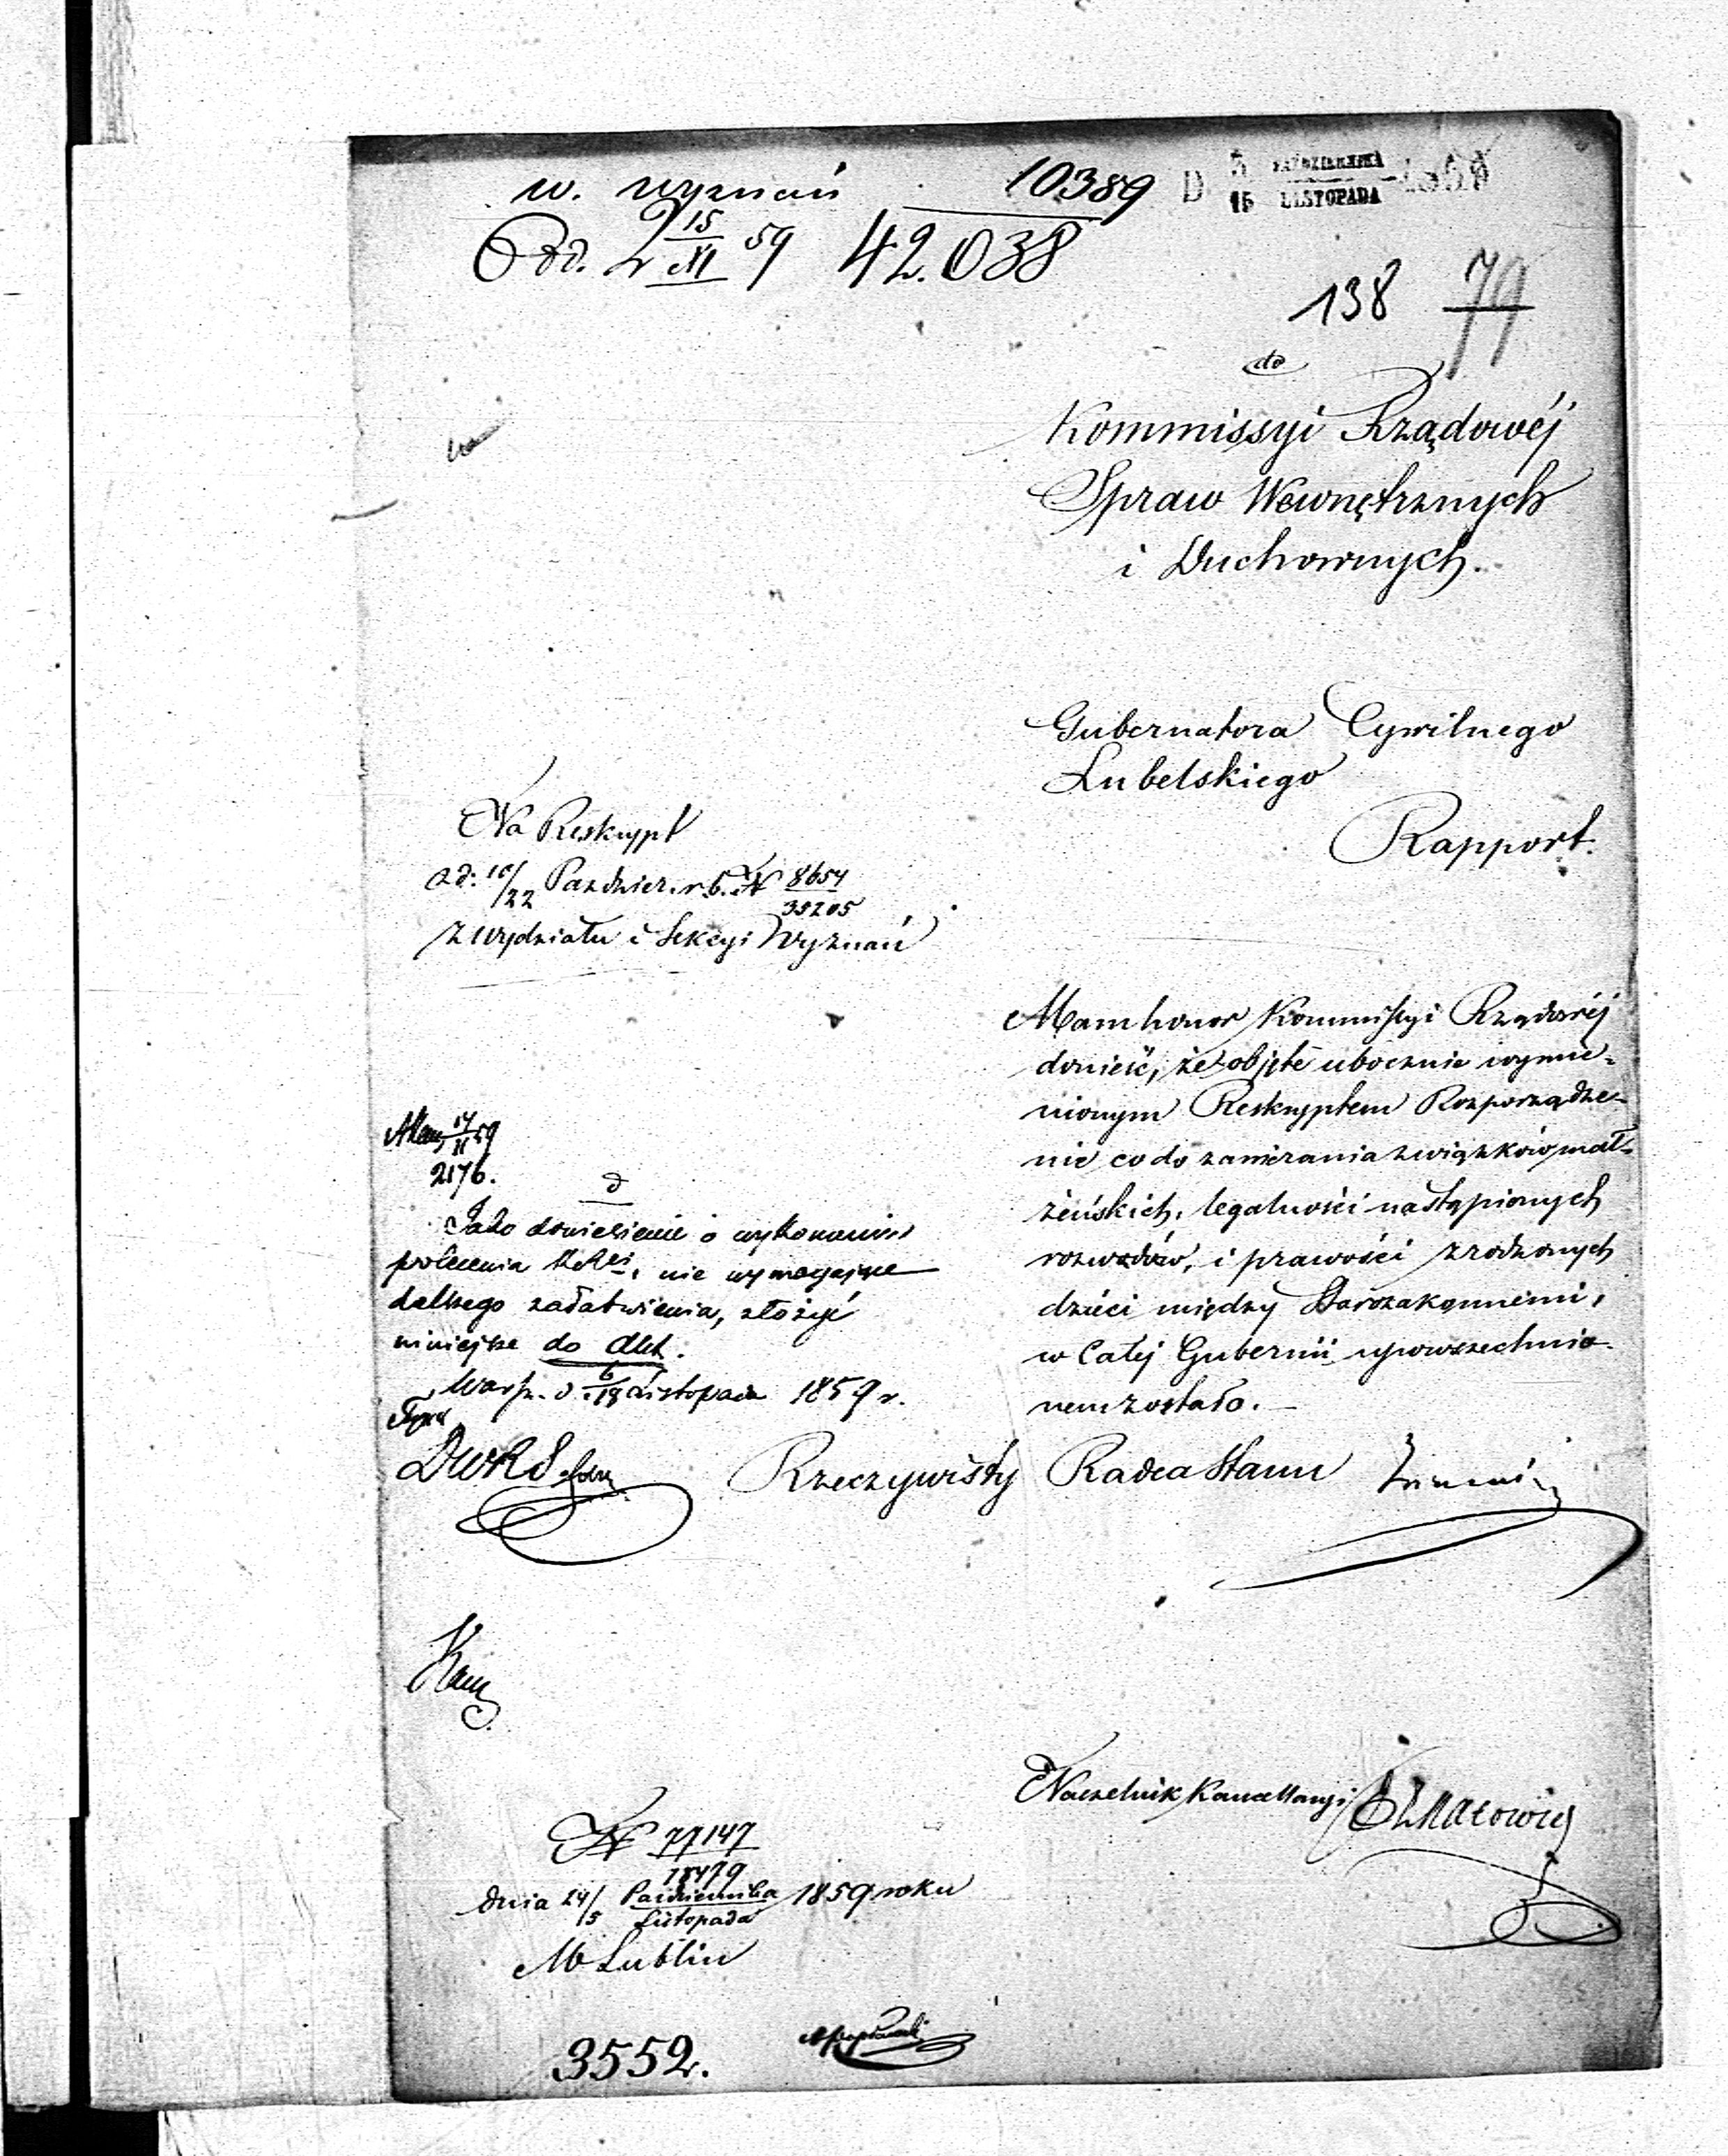 w. wyznań 10389 D 3 PAŹDZIERNIKA
15 LISTOPADA 1859
Odd. 2 15/XI 59 42.038
138 79
do
Kommissyi Rządowéj
Spraw Wewnętrznych
i Duchownych.
Gubernatora Cywilnego
Lubelskiego
Rapport.
Na Reskrypt
z d: 10/22 Paździer. r. b. N 8654/35205
z Wydziału i Sekcyi Wyznań
Mam honor Kommissyi Rządowéj
donieść, że objęte ubocznie wymie-
nionym Reskryptem Rozporządze-
nie co do zawierania związków mał-
żeńskich, legalności nastąpionych
rozwodów, i prawości zrodzonych
dzieci między Starozakonnemi,
w Całej Gubernii upowszechnio-
nem zostało.
Rzeczywisty Radca Stanu
2176.
Jako doniesienie o wykonaniu
polecenia, nie wymagające
dalszego załatwienia, złożyć
niniejsze do Akt.
Warsz. d. 6/18 Listopada 1859 r.
Naczelnik Kancellaryi
N 77147/18479
dnia 24/5 Października/Listopada 1859 roku
w Lublin
3552.